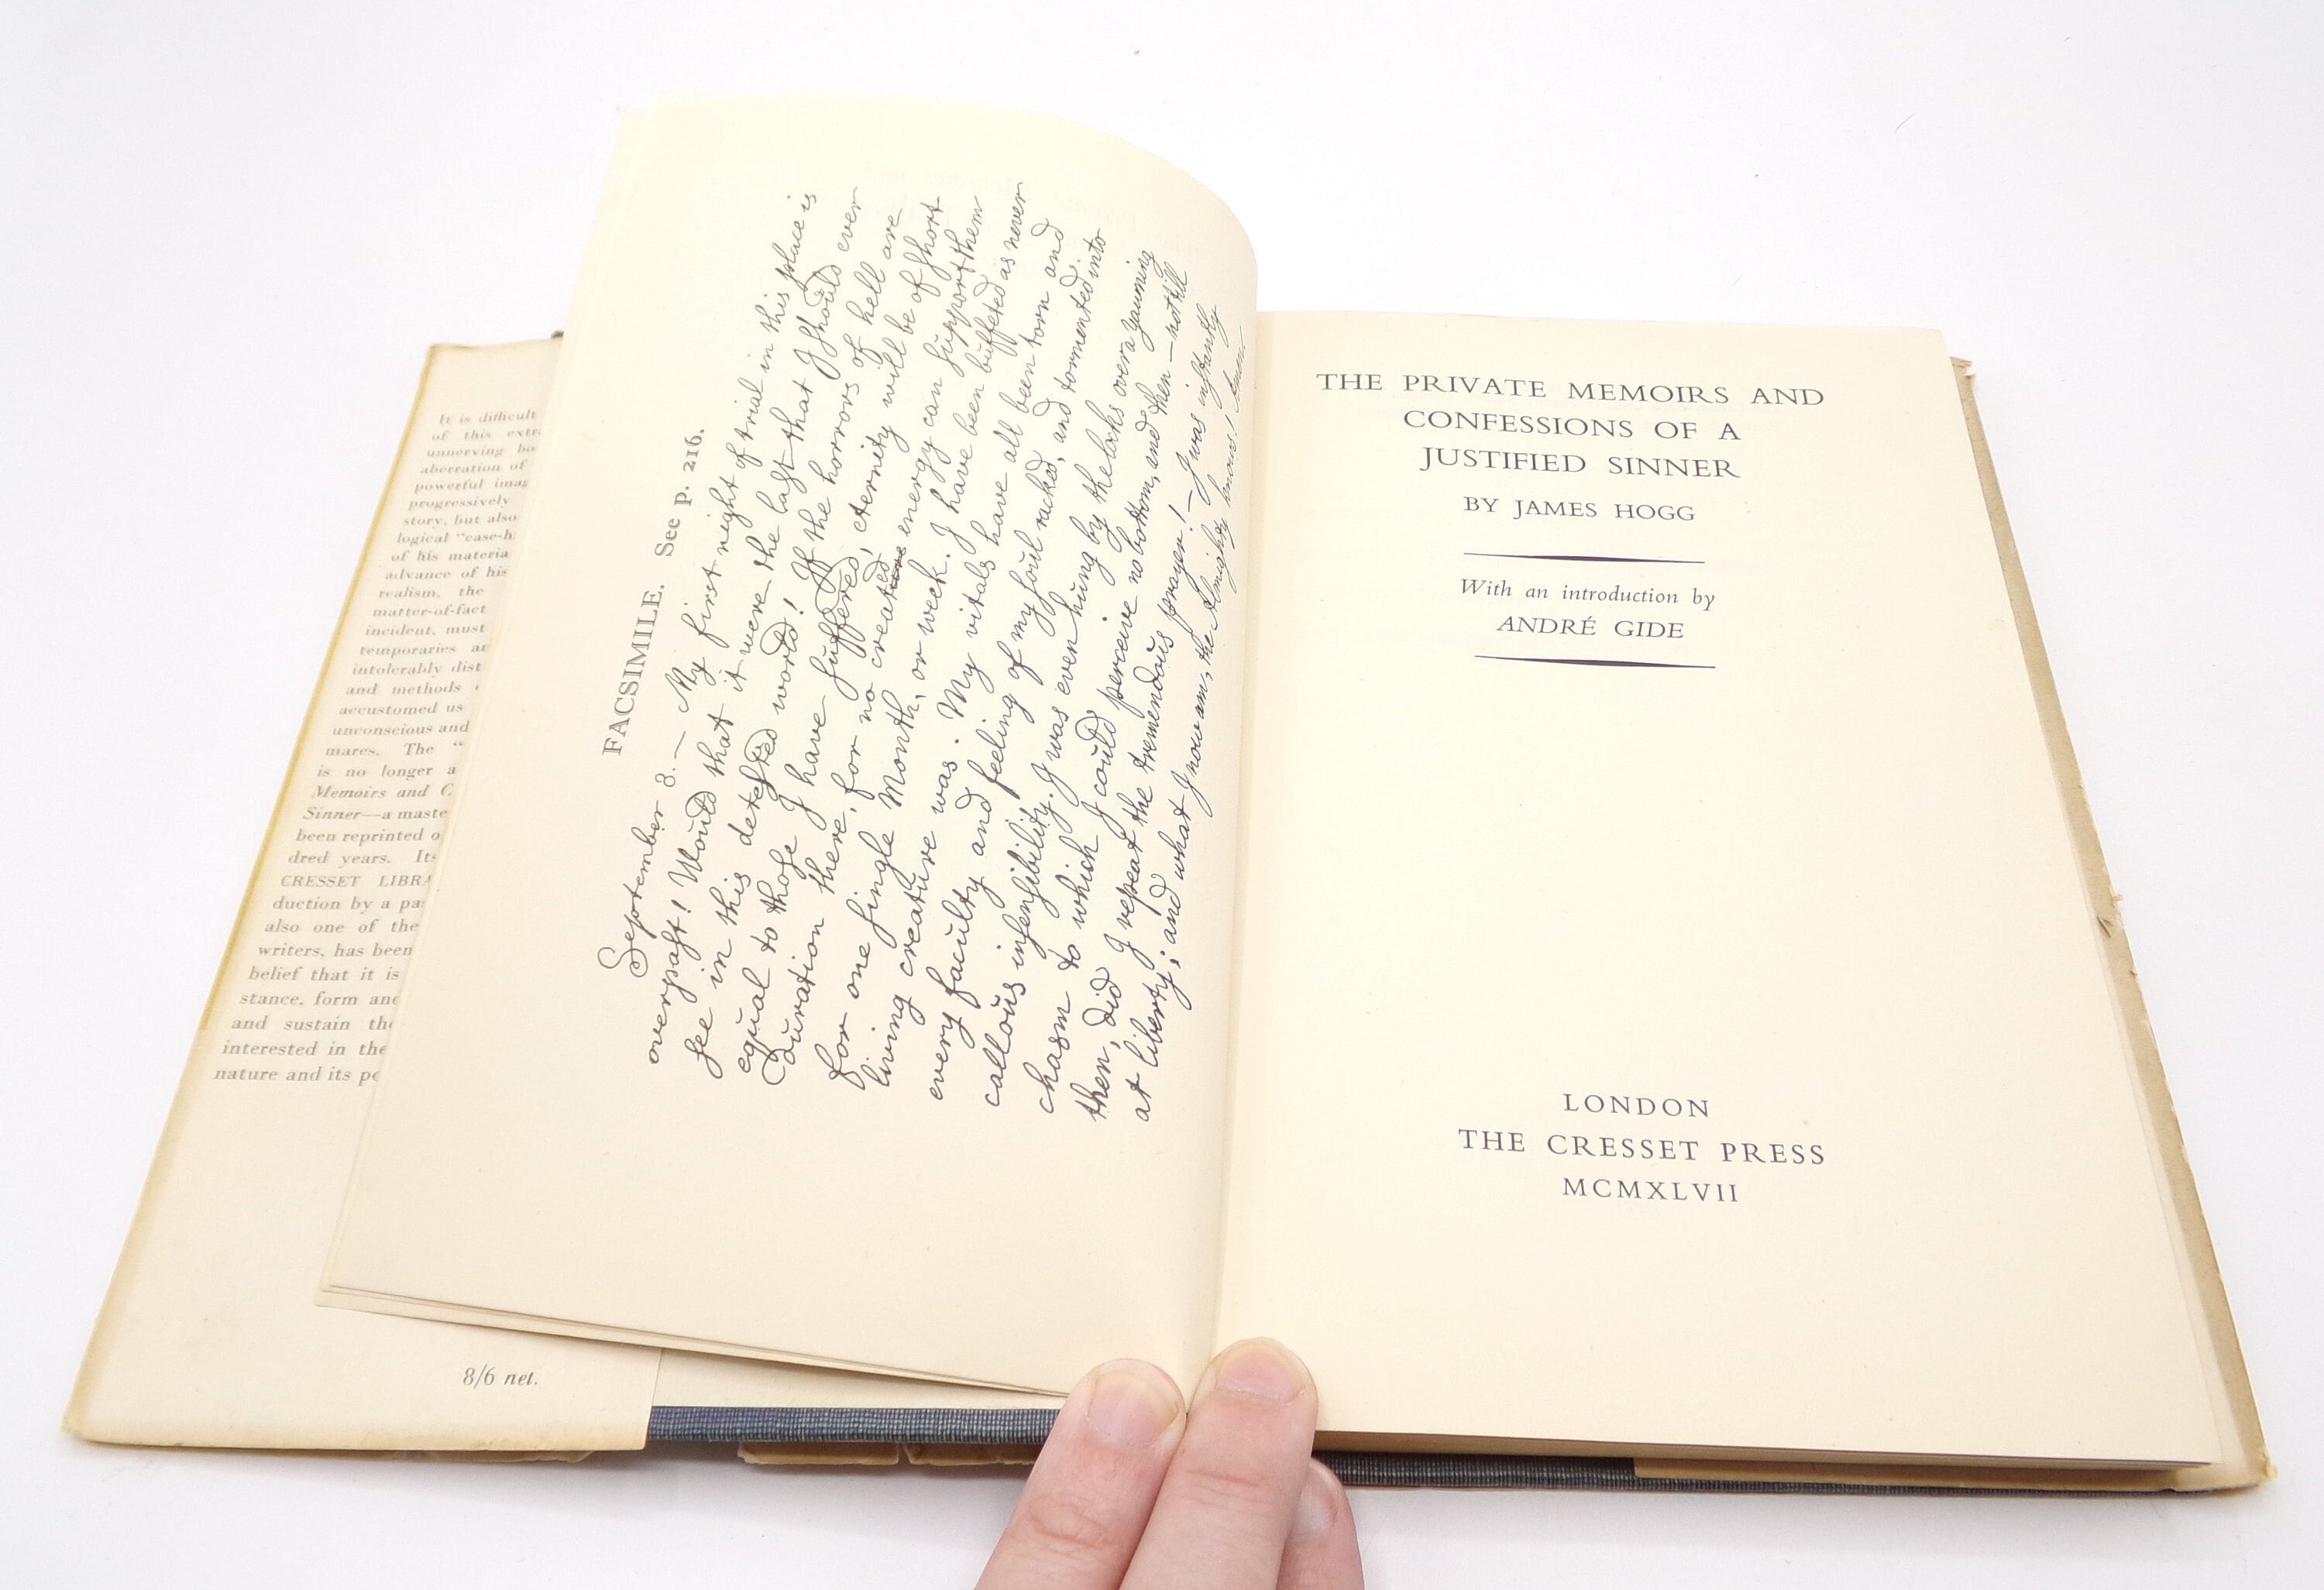 It is difficult
of this extr
unnerving bo
aberration of
powerful imag
progressively
story, but also
logical "case-h
of his materia
advance of his
realism, the
matter-of-fact
incident, must
temporaries an
intolerably dist
and methods
accustomed us
unconscious and
mares. The "
is no longer a
Memoirs and C
Sinner—a maste
been reprinted o
dred years. Its
CRESSET LIBRA
duction by a pa
also one of the
writers, has been
belief that it is
stance, form and
and sustain the
interested in the
nature and its pe
8/6 net.
FACSIMILE. See p. 216.
September 8.— My first night of trial in this place is
overpaſt! Would that it were the laſt that I ſhould ever
ſee in this deteſted world! If the horrors of hell are
equal to thoſe I have ſuffered, eternity will be of ſhort
duration there, for no created energy can ſupport them
for one ſingle Month, or week. I have been buffeted as never
living creature was. My vitals have all been torn and
every faculty and feeling of my ſoul racked, and tormented into
callous inſenſibility. I was even hung by the locks over a yawning
chasm to which I could perceive no bottom, and then—not till
then, did I repeat the tremendous prayer!—I was inſtantly
at liberty; and what I now am, the Almighty knows! Amen.
THE PRIVATE MEMOIRS AND
CONFESSIONS OF A
JUSTIFIED SINNER
BY JAMES HOGG
With an introduction by
ANDRÉ GIDE
LONDON
THE CRESSET PRESS
MCMXLVII